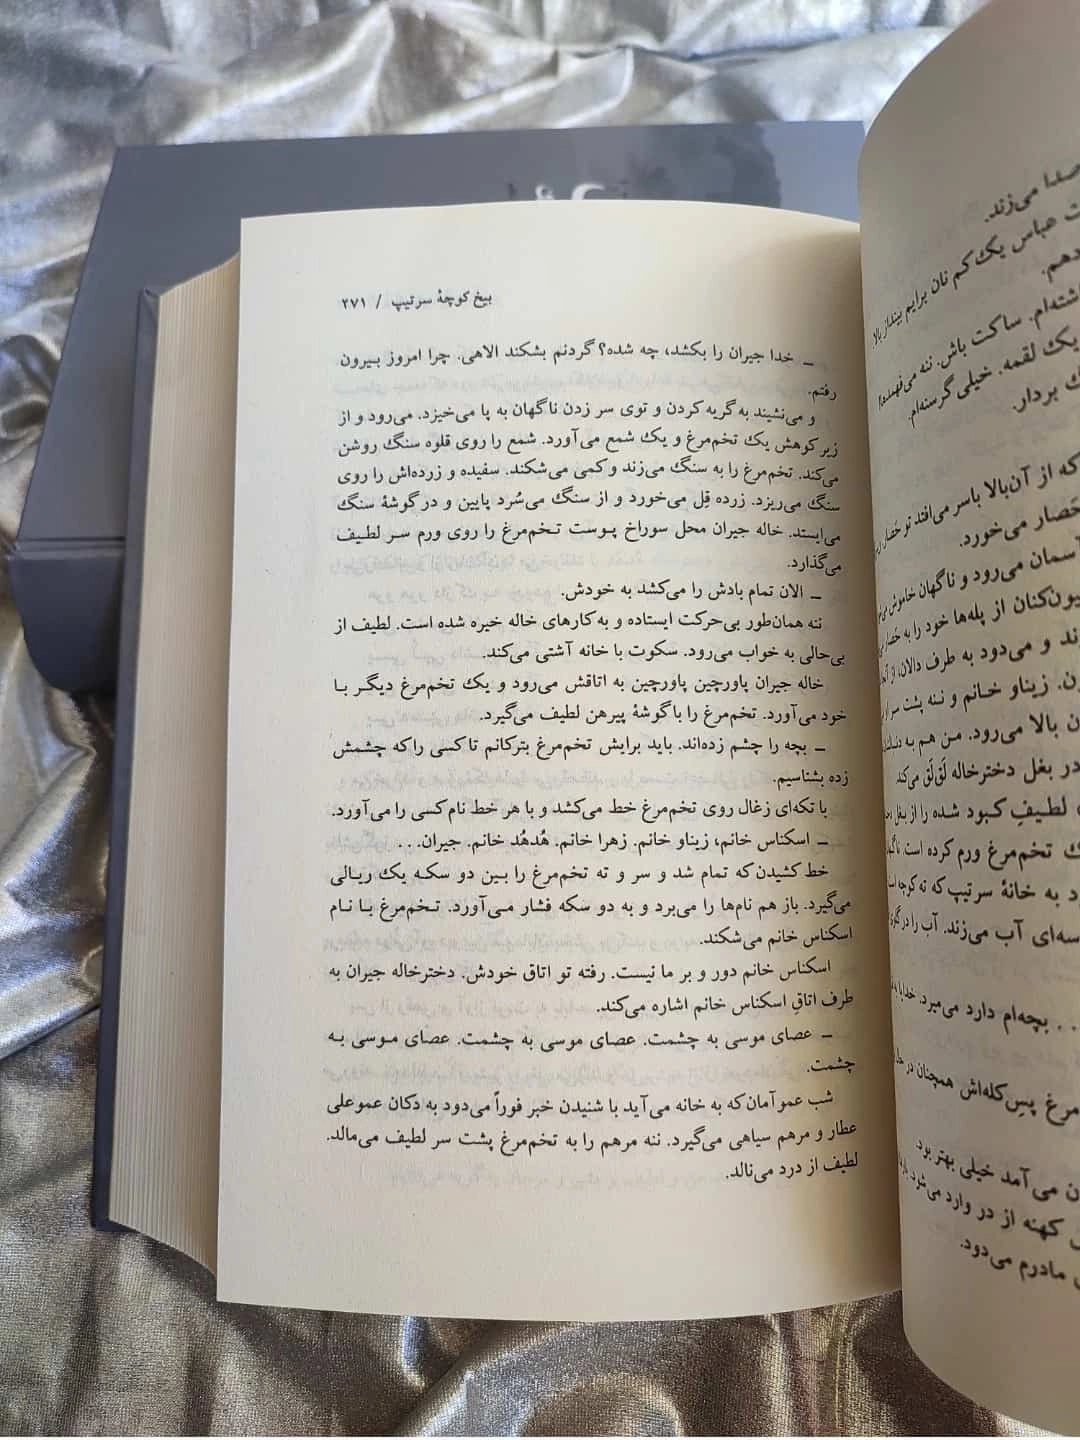 بیخ کوچهٔ سرتیپ / ۲۷۱
ــ خدا جیران را بکشد، چه شده؟ گردنم بشکند الاهی. چرا امروز بیرون
رفتم.
و می‌نشیند به گریه کردن و توی سر زدن ناگهان به پا می‌خیزد. می‌رود و از
زیر کوهش یک تخم‌مرغ و یک شمع می‌آورد. شمع را روی قلوه سنگ روشن
می‌کند. تخم‌مرغ را به سنگ می‌زند و کمی می‌شکند. سفیده و زرده‌اش را روی
سنگ می‌ریزد. زرده قِل می‌خورد و از سنگ می‌سُرد پایین و در گوشهٔ سنگ
می‌ایستد. خاله جیران محل سوراخ پوست تخم‌مرغ را روی ورم سر لطیف
می‌گذارد.
ــ الان تمام بادش را می‌کشد به خودش.
ننه همان‌طور بی‌حرکت ایستاده و به کارهای خاله خیره شده است. لطیف از
بی‌حالی به خواب می‌رود. سکوت با خانه آشتی می‌کند.
خاله جیران پاورچین پاورچین به اتاقش می‌رود و یک تخم‌مرغ دیگر با
خود می‌آورد. تخم‌مرغ را با گوشهٔ پیرهن لطیف می‌گیرد.
ــ بچه را چشم زده‌اند. باید برایش تخم‌مرغ بترکانم تا کسی را که چشمش
زده بشناسیم.
با تکه‌ای زغال روی تخم‌مرغ خط می‌کشد و با هر خط نام کسی را می‌آورد.
ــ اسکناس خانم، زیناو خانم. زهرا خانم. هُدهُد خانم. جیران...
خط کشیدن که تمام شد و سر و ته تخم‌مرغ را بین دو سکه یک ریالی
می‌گیرد. باز هم نام‌ها را می‌برد و به دو سکه فشار می‌آورد. تخم‌مرغ با نام
اسکناس خانم می‌شکند.
اسکناس خانم دور و بر ما نیست. رفته تو اتاق خودش. دخترخاله جیران به
طرف اتاقِ اسکناس خانم اشاره می‌کند.
ــ عصای موسی به چشمت. عصای موسی به چشمت. عصای موسی به
چشمت.
شب عمو آمان که به خانه می‌آید با شنیدن خبر فوراً می‌دود به دکان عموعلی
عطار و مرهم سیاهی می‌گیرد. ننه مرهم را به تخم‌مرغ پشت سر لطیف می‌مالد.
لطیف از درد می‌نالد.
صدا می‌زند.
عباس یک کم نان برایم بینداز بالا.
ساکت باش. ننه می‌فهمد!
یک لقمه. خیلی گرسنه‌ام.
بردار.
که از آن‌بالا با سر می‌افتد تو حَصار
حَصار می‌خورد.
آسمان می‌رود و ناگهان خاموش
از پله‌ها خود را به حَصار
و می‌دود به طرف دالان،
زیناو خانم و ننه پشت سر
بالا می‌رود. من هم به
در بغل دخترخاله لَق‌لَق می‌کند
لطیفِ کبود شده را از بغل
تخم‌مرغ ورم کرده است.
به خانهٔ سرتیپ که ته کوچه
آب می‌زند. آب را در گلوی
... بچه‌ام دارد می‌میرد. خدایا
مرغ پسِ کله‌اش همچنان در
می‌آمد خیلی بهتر بود.
کهنه از در وارد می‌شود.
مادرم می‌دود.